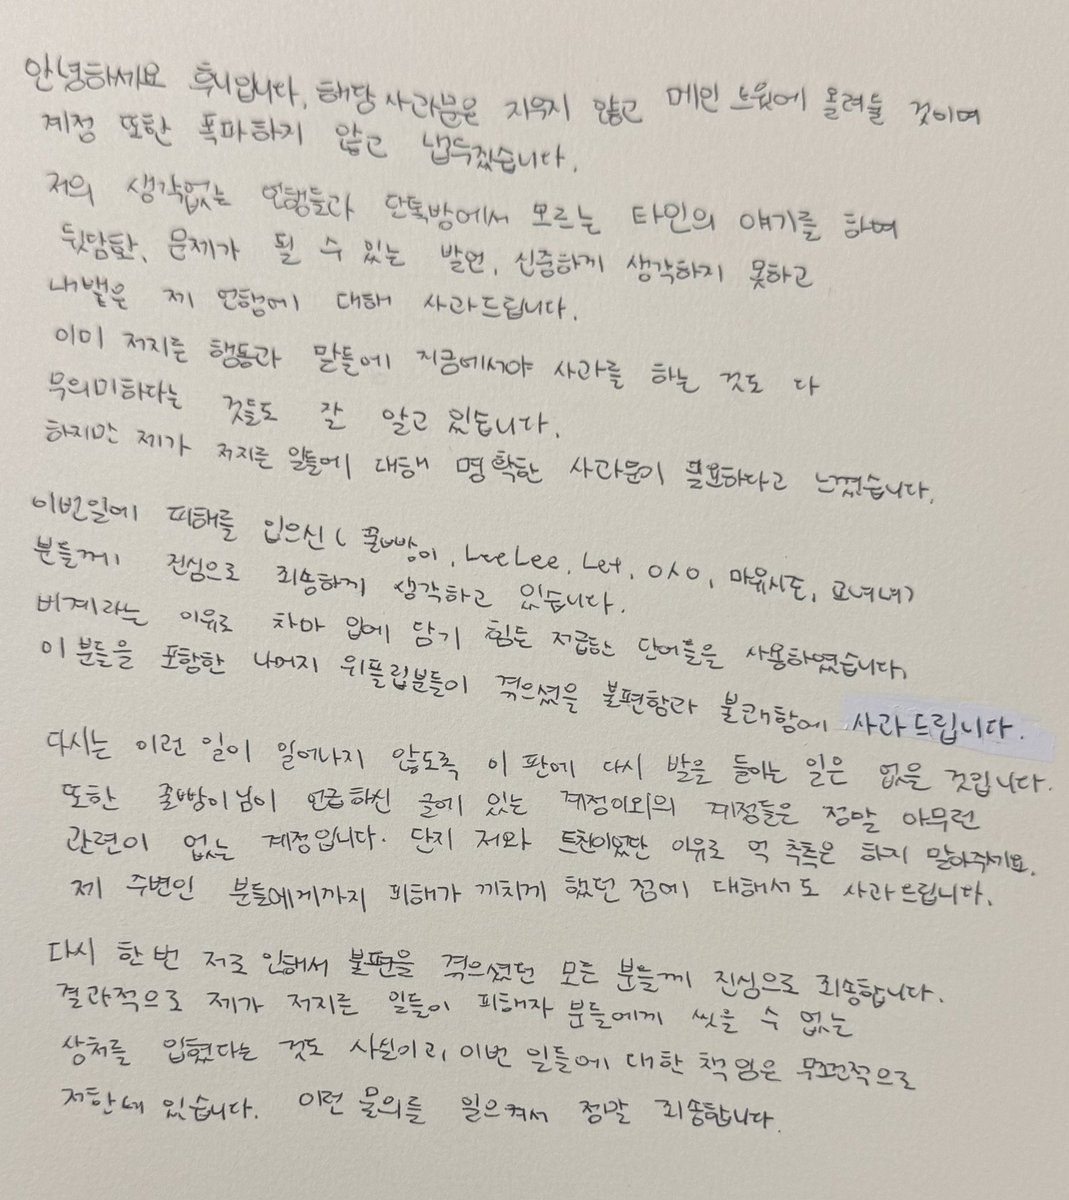 안녕하세요 후니입니다. 해당 사과문은 지우지 않고 메인 트윗에 올려둘 것이며
계정 또한 폭파하지 않고 냅두겠습니다.
저의 생각없는 언행들과 단톡방에서 모르는 타인의 얘기를 하여
뒷담화, 문제가 될 수 있는 발언, 신중하게 생각하지 못하고
내뱉은 제 언행에 대해 사과드립니다.
이미 저지른 행동과 말들에 지금에서야 사과를 하는 것도 다
무의미하다는 것들도 잘 알고 있습니다.
하지만 제가 저지른 일들에 대해 명확한 사과문이 필요하다고 느꼈습니다.
이번일에 피해를 입으신 ( 꿀빵이, LeeLee, Let, 이시오, 마유시도,
분들께 진심으로 죄송하게 생각하고 있습니다.
비계라는 이유로 차마 입에 담기 힘든 저급한 단어들을 사용하였습니다.
이 분들을 포함한 나머지 위플립분들이 겪으셨을 불편함과 불쾌함에 사과드립니다.
다시는 이런 일이 일어나지 않도록 이 판에 다시 발을 들이는 일은 없을 것입니다.
또한 꿀빵이님이 언급하신 글에 있는 계정이외의 계정들은 정말 아무런
관련이 없는 계정입니다. 단지 저와 트친이었단 이유로 억측은 하지 말아주세요.
제 주변인 분들에게까지 피해가 끼치게 했던 점에 대해서도 사과드립니다.
다시 한번 저로 인해서 불편을 겪으셨던 모든 분들께 진심으로 죄송합니다.
결과적으로 제가 저지른 일들이 피해자 분들에게 씻을 수 없는
상처를 입혔다는 것도 사실이고, 이번 일들에 대한 책임은 무조건적으로
저한테 있습니다. 이런 물의를 일으켜서 정말 죄송합니다.